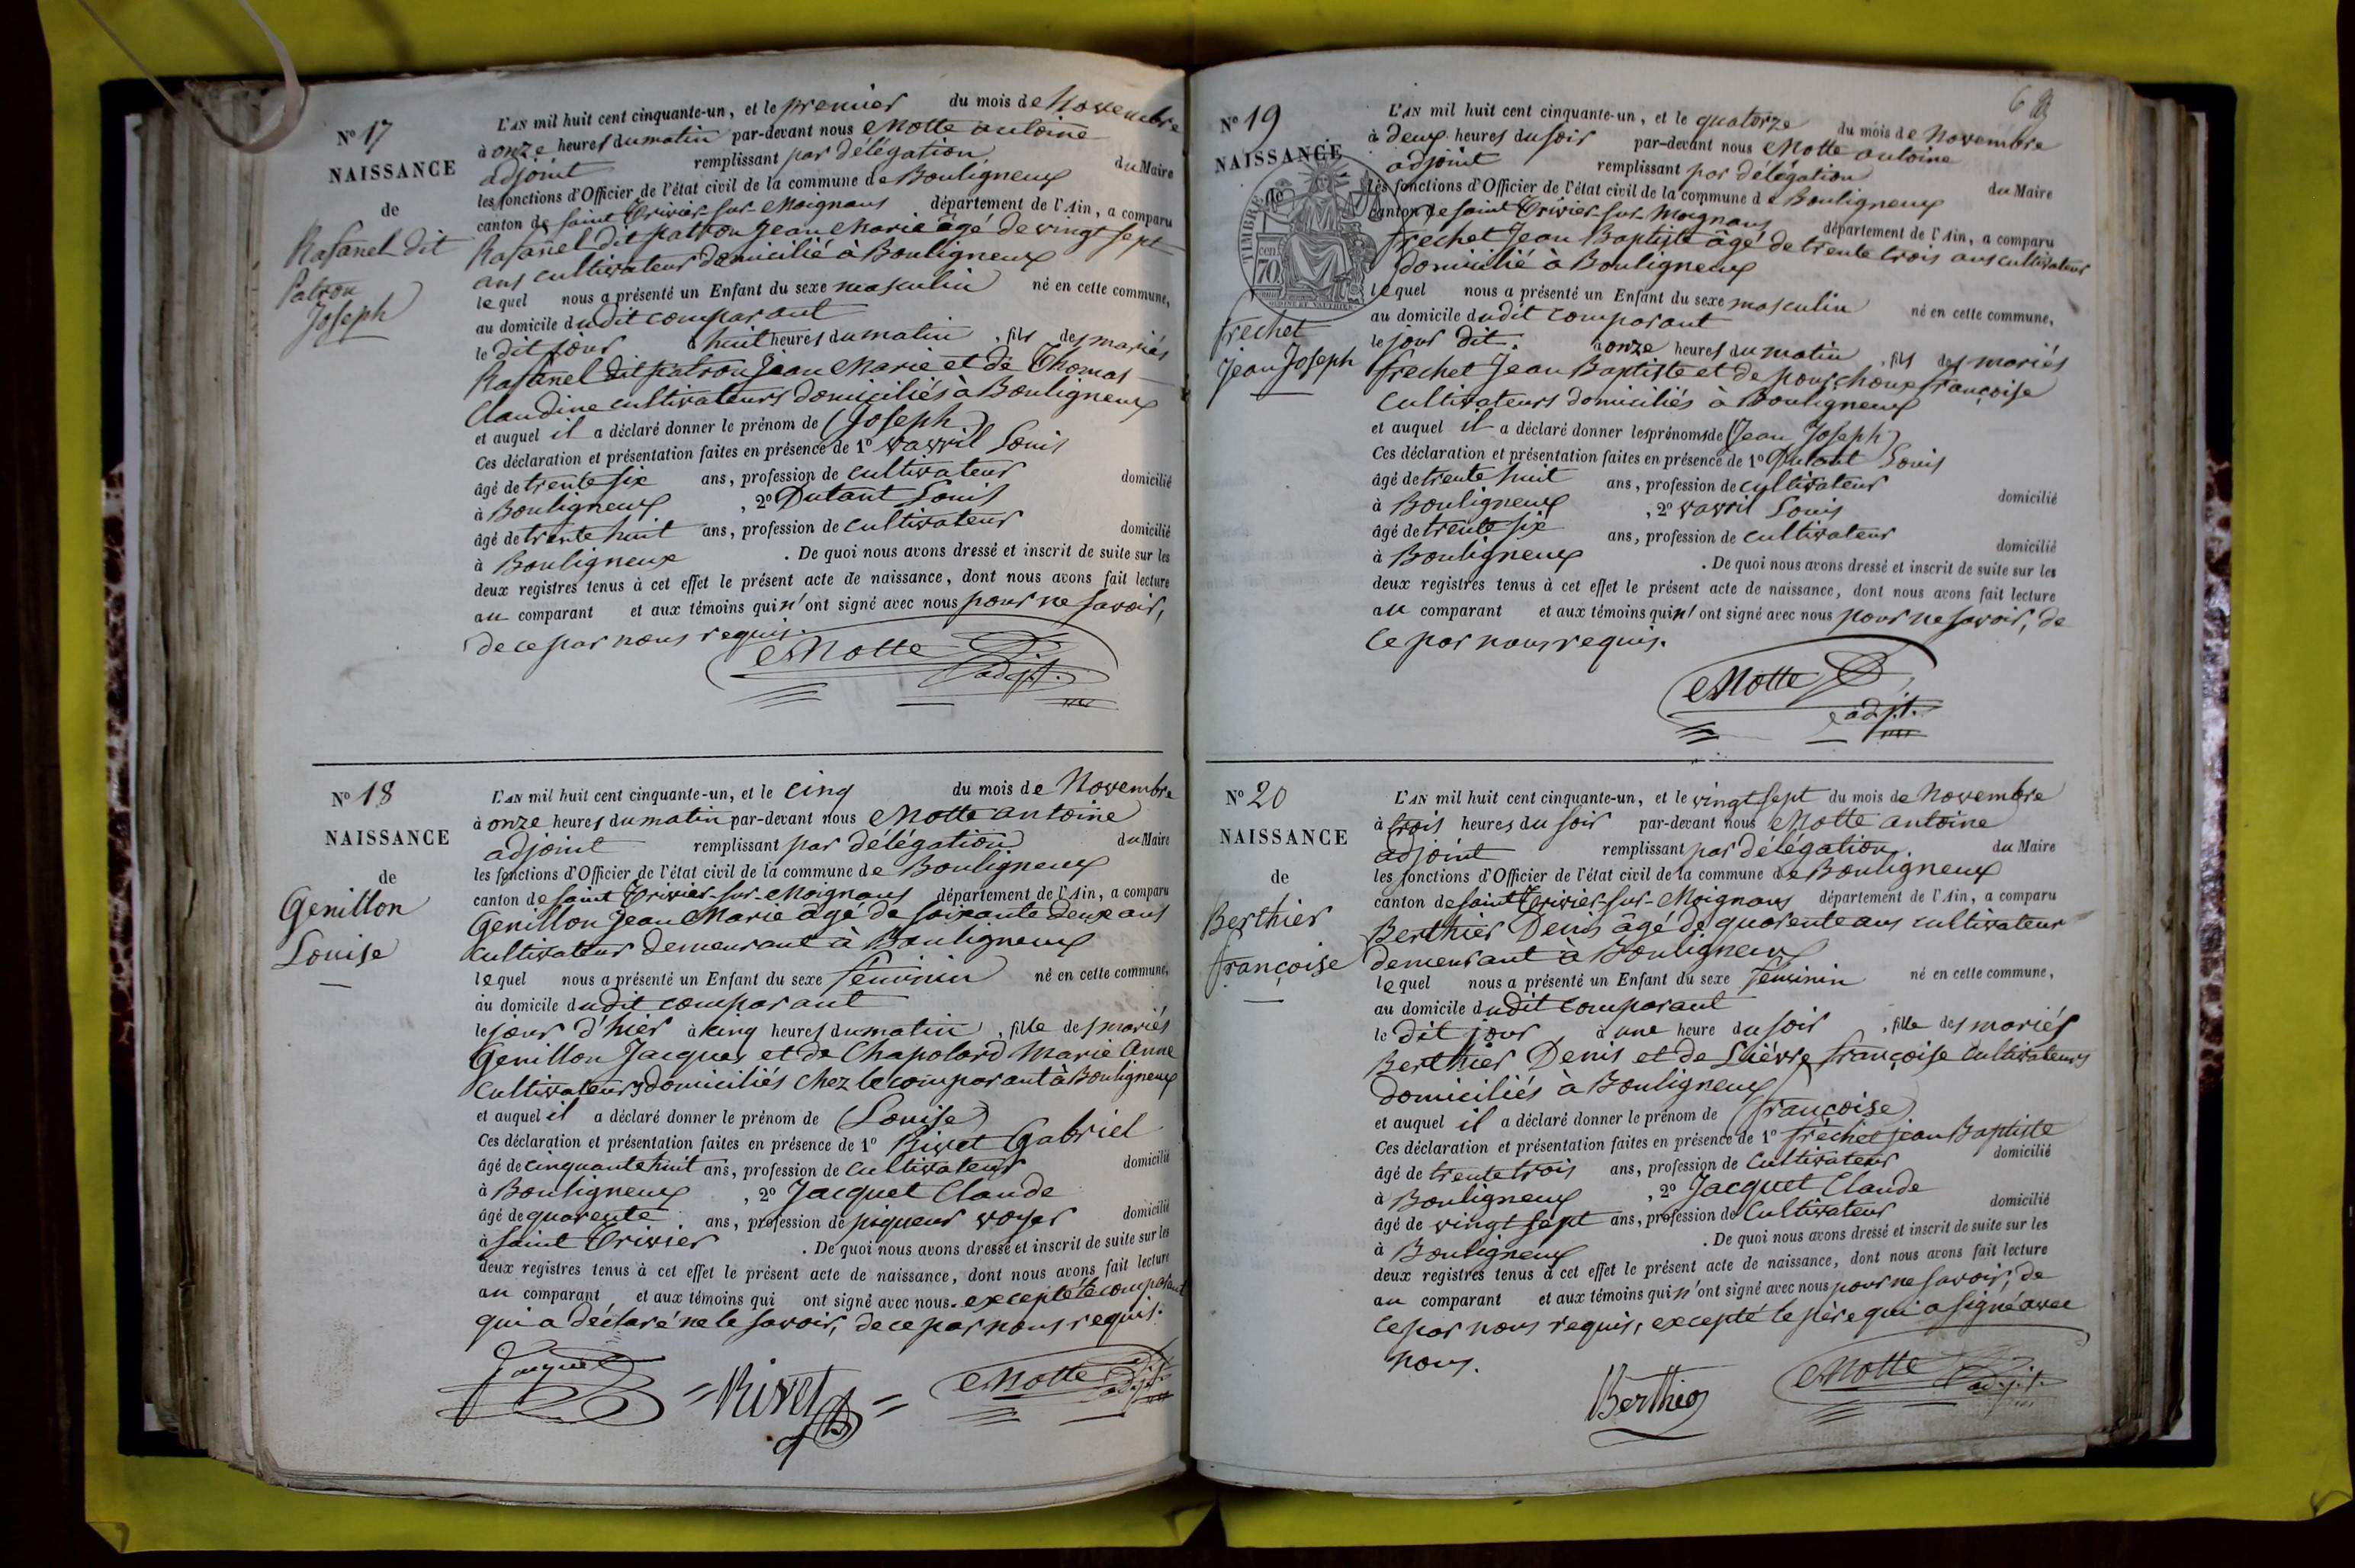 Nº 17
NAISSANCE
de
Rafanel dit
Patron
Joseph
L'AN mil huit cent cinquante-un, et le premier du mois de Novembre
à onze heures du matin par-devant nous Motte antoine
adjoint remplissant par délégation du Maire
les fonctions d'Officier de l'état civil de la commune de Bouligneux
canton de saint Trivier-sur-Moignans département de l'Ain, a comparu
Rafanel dit patron Jean Marie âgé de vingt sept
ans cultivateur domicilié à Bouligneux
lequel nous a présenté un Enfant du sexe masculin né en cette commune,
au domicile dudit comparant
le dit jour à huit heures du matin, fils des mariés
Rafanel dit patron Jean Marie et de Thomas
Claudine cultivateurs domiciliés à Bouligneux
et auquel il a déclaré donner le prénom de (Joseph)
Ces déclaration et présentation faites en présence de 1º Vavril Louis
âgé de trente six ans, profession de cultivateur domicilié
à Bouligneux, 2º Dutant Louis
âgé de trente huit ans, profession de cultivateur domicilié
à Bouligneux. De quoi nous avons dressé et inscrit de suite sur les
deux registres tenus à cet effet le présent acte de naissance, dont nous avons fait lecture
au comparant et aux témoins qui n'ont signé avec nous pour ne savoir,
de ce par nous requis.
Motte
adjt.
Nº 18
NAISSANCE
de
Genillon
Louise
L'AN mil huit cent cinquante-un, et le cinq du mois de Novembre
à onze heures du matin par-devant nous Motte antoine
adjoint remplissant par délégation du Maire
les fonctions d'Officier de l'état civil de la commune de Bouligneux
canton de saint Trivier-sur-Moignans département de l'Ain, a comparu
Genillon Jean Marie âgé de soixante deux ans
cultivateur demeurant à Bouligneux
lequel nous a présenté un Enfant du sexe féminin né en cette commune,
au domicile dudit comparant
le jour d'hier à cinq heures du matin, fille des mariés
Genillon Jacques et de Chapolard Marie Anne
cultivateurs domiciliés chez le comparant à Bouligneux
et auquel il a déclaré donner le prénom de (Louise)
Ces déclaration et présentation faites en présence de 1º Rivet Gabriel
âgé de cinquante huit ans, profession de cultivateur domicilié
à Bouligneux, 2º Jacquet Claude
âgé de quarente ans, profession de piqueur voyer domicilié
à saint Trivier. De quoi nous avons dressé et inscrit de suite sur les
deux registres tenus à cet effet le présent acte de naissance, dont nous avons fait lecture
au comparant et aux témoins qui ont signé avec nous. excepté le comparant
qui a déclaré ne le savoir, de ce par nous requis.
Jacquet = Rivet = Motte adjt.
6
Nº 19
NAISSANCE
de
TIMBRE
70
frechet
jean Joseph
L'AN mil huit cent cinquante-un, et le quatorze du mois de Novembre
à deux heures du soir par-devant nous Motte antoine
adjoint remplissant par délégation du Maire
les fonctions d'Officier de l'état civil de la commune de Bouligneux
canton de saint Trivier-sur-Moignans département de l'Ain, a comparu
frechet Jean Baptiste âgé de trente trois ans cultivateur
domicilié à Bouligneux
lequel nous a présenté un Enfant du sexe masculin né en cette commune,
au domicile dudit comparant
le jour dit. à onze heures du matin, fils des mariés
frechet Jean Baptiste et de pouchoux françoise
cultivateurs domiciliés à Bouligneux
et auquel il a déclaré donner les prénoms de (Jean Joseph)
Ces déclaration et présentation faites en présence de 1º Dutant Louis
âgé de trente huit ans, profession de cultivateur domicilié
à Bouligneux, 2º Vavril Louis
âgé de trente six ans, profession de cultivateur domicilié
à Bouligneux. De quoi nous avons dressé et inscrit de suite sur les
deux registres tenus à cet effet le présent acte de naissance, dont nous avons fait lecture
au comparant et aux témoins qui n'ont signé avec nous pour ne savoir, de
ce par nous requis.
Motte
adjt.
Nº 20
NAISSANCE
de
Berthier
françoise
L'AN mil huit cent cinquante-un, et le vingt sept du mois de Novembre
à trois heures du soir par-devant nous Motte antoine
adjoint remplissant par délégation. du Maire
les fonctions d'Officier de l'état civil de la commune de Bouligneux
canton de saint Trivier-sur-Moignans département de l'Ain, a comparu
Berthier Denis âgé de quarente ans cultivateur
demeurant à Bouligneux
lequel nous a présenté un Enfant du sexe féminin né en cette commune,
au domicile dudit comparant
le dit jour à une heure du soir, fille des mariés
Berthier Denis et de Lièvre françoise cultivateurs
domiciliés à Bouligneux
et auquel il a déclaré donner le prénom de (françoise)
Ces déclaration et présentation faites en présence de 1º fréchet jean Baptiste
âgé de trente trois ans, profession de cultivateur domicilié
à Bouligneux, 2º Jacquet Claude
âgé de vingt sept ans, profession de cultivateur domicilié
à Bouligneux. De quoi nous avons dressé et inscrit de suite sur les
deux registres tenus à cet effet le présent acte de naissance, dont nous avons fait lecture
au comparant et aux témoins qui n'ont signé avec nous pour ne savoir, de
ce par nous requis, excepté le père qui a signé avec
nous.
Berthier Motte adjt.